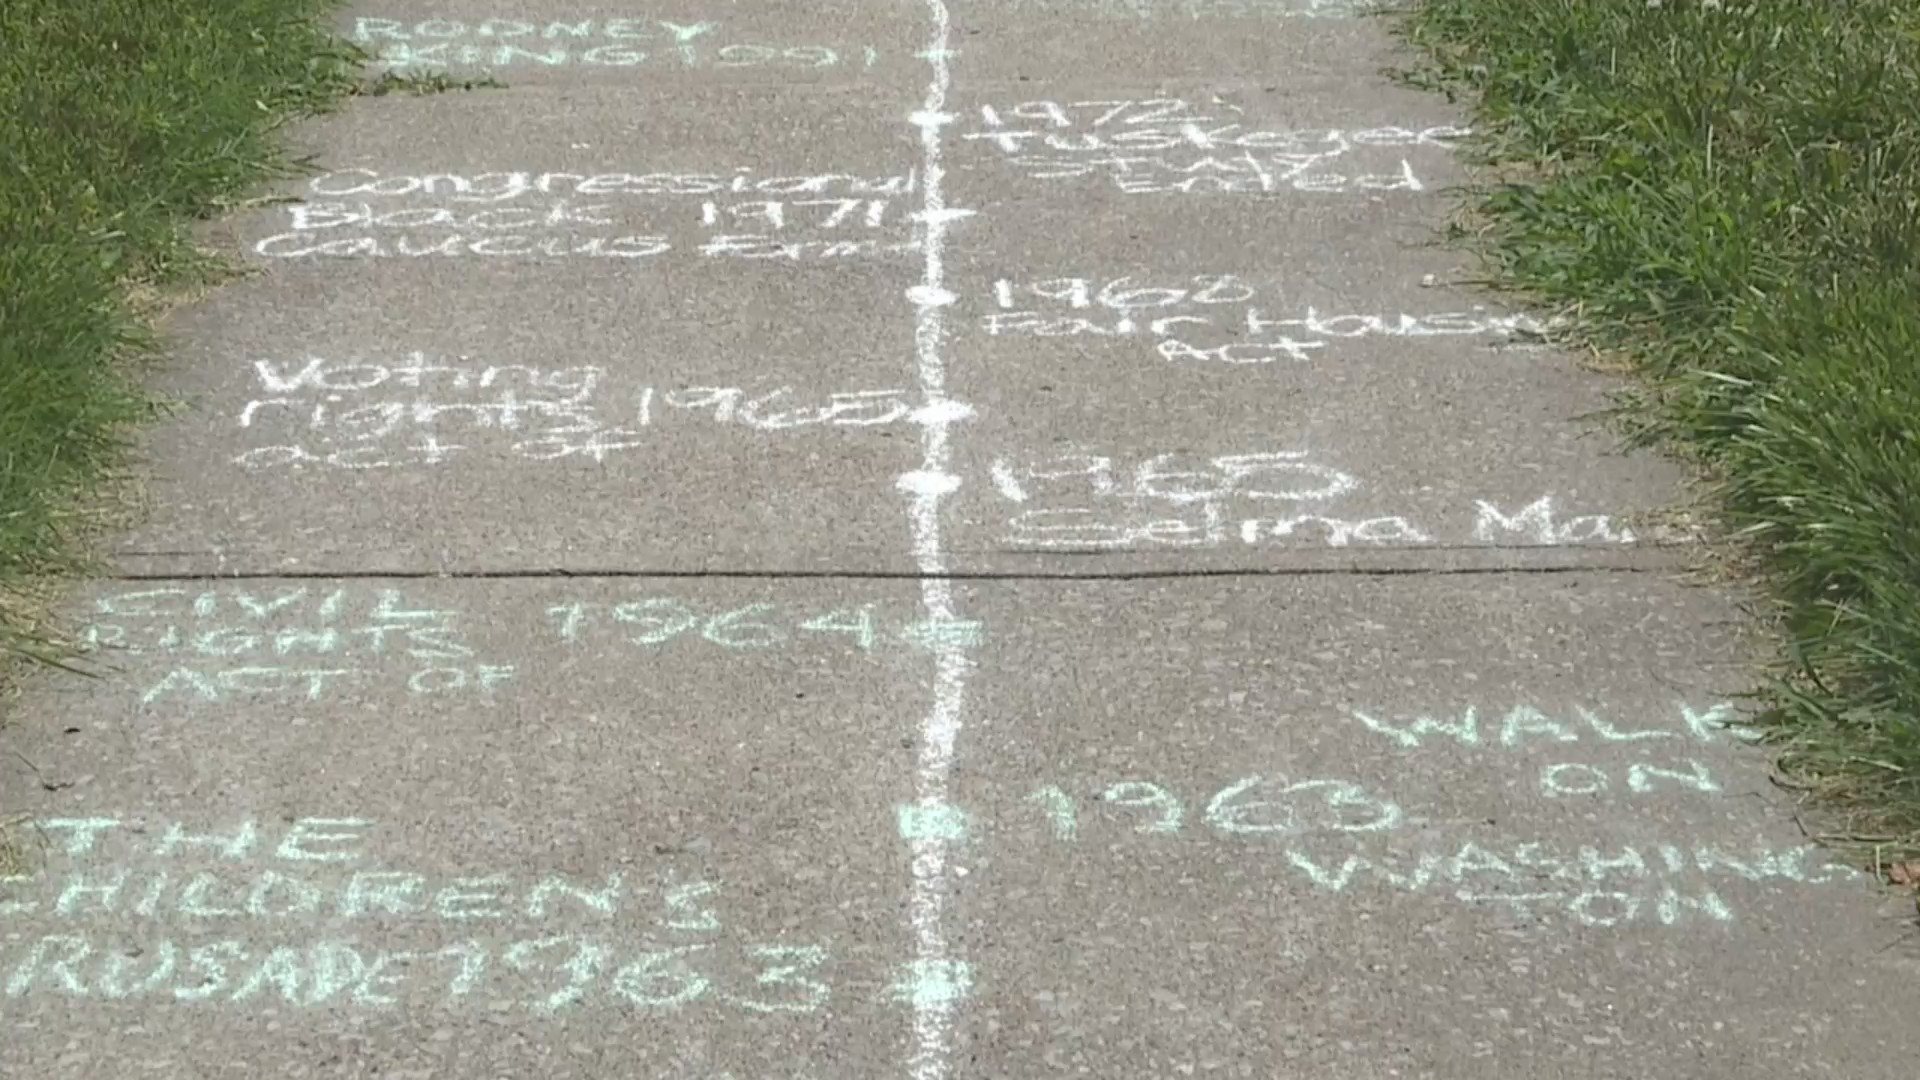 RODNEY
KING 1991
1972
Tuskegee
Study
Ended
Congressional
Black 1971
Caucus Form
1968
Fair Housin
Act
Voting
rights 1965
act of
1965
Selma Ma
CIVIL
RIGHTS 1964
ACT OF
WALK
ON
1963
WASHING
TON
THE
CHILDRENS
RUSADE 1963